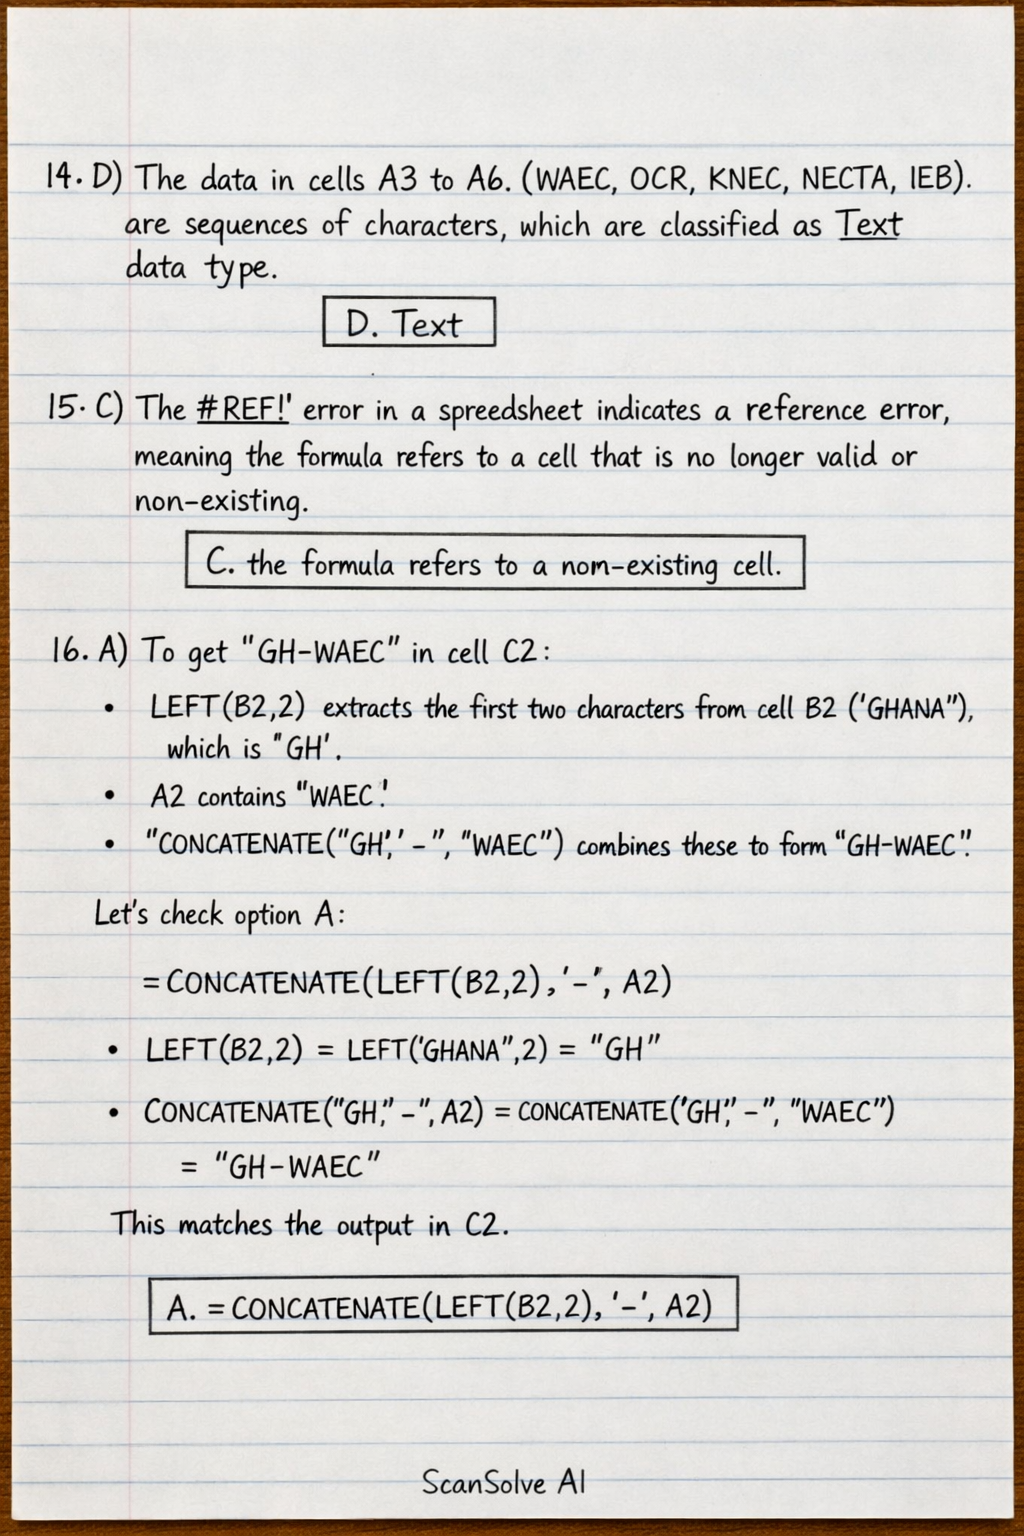 14. D) The data in cells A3 to A6. (WAEC, OCR, KNEC, NECTA, IEB).
are sequences of characters, which are classified as Text
data type.
D. Text
15. C) The #REF!' error in a spreedsheet indicates a reference error,
meaning the formula refers to a cell that is no longer valid or
non-existing.
C. the formula refers to a nom-existing cell.
16. A) To get "GH-WAEC" in cell C2:
• LEFT(B2,2) extracts the first two characters from cell B2 ('GHANA"),
which is "GH'.
• A2 contains "WAEC'.
• "CONCATENATE("GH',' - ", "WAEC") combines these to form "GH-WAEC".
Let's check option A:
= CONCATENATE(LEFT(B2,2), '-", A2)
• LEFT(B2,2) = LEFT('GHANA",2) = "GH"
• CONCATENATE("GH," - ", A2) = CONCATENATE('GH," - ", "WAEC")
= "GH-WAEC"
This matches the output in C2.
A. = CONCATENATE(LEFT(B2,2), '-', A2)
ScanSolve AI